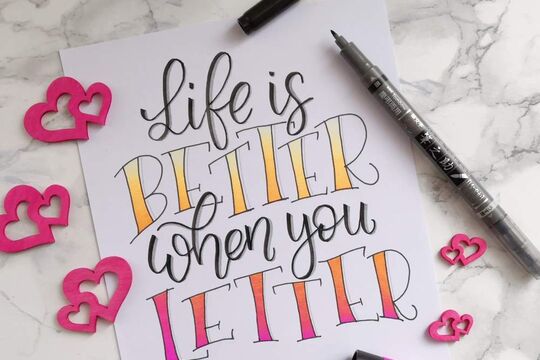 Life is
BETTER
when you
LETTER